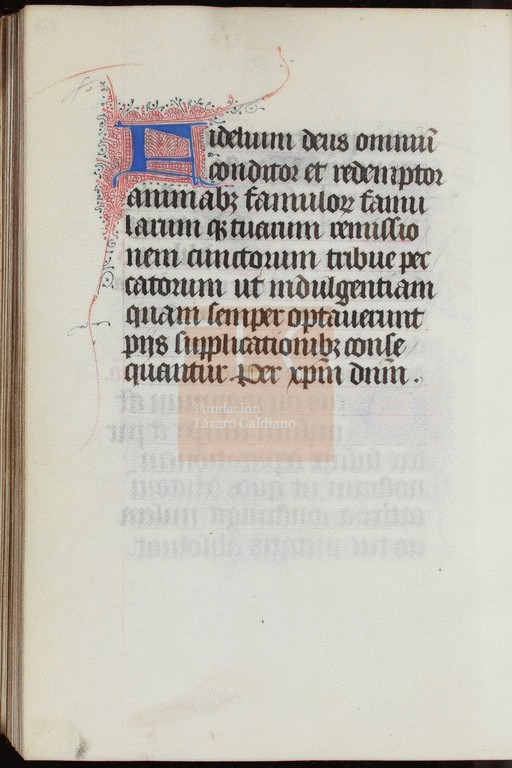 Fidelium deus omniū
conditor et redemptor
animabꝫ famuloꝝ famu
larum qꝫ tuarum remissio
nem cunctorum tribue pec
catorum ut indulgentiam
quam semper optauerunt
pijs supplicationibꝫ conse
quantur. Per xp̄m dn̄m.
Fundación
Lázaro Galdiano